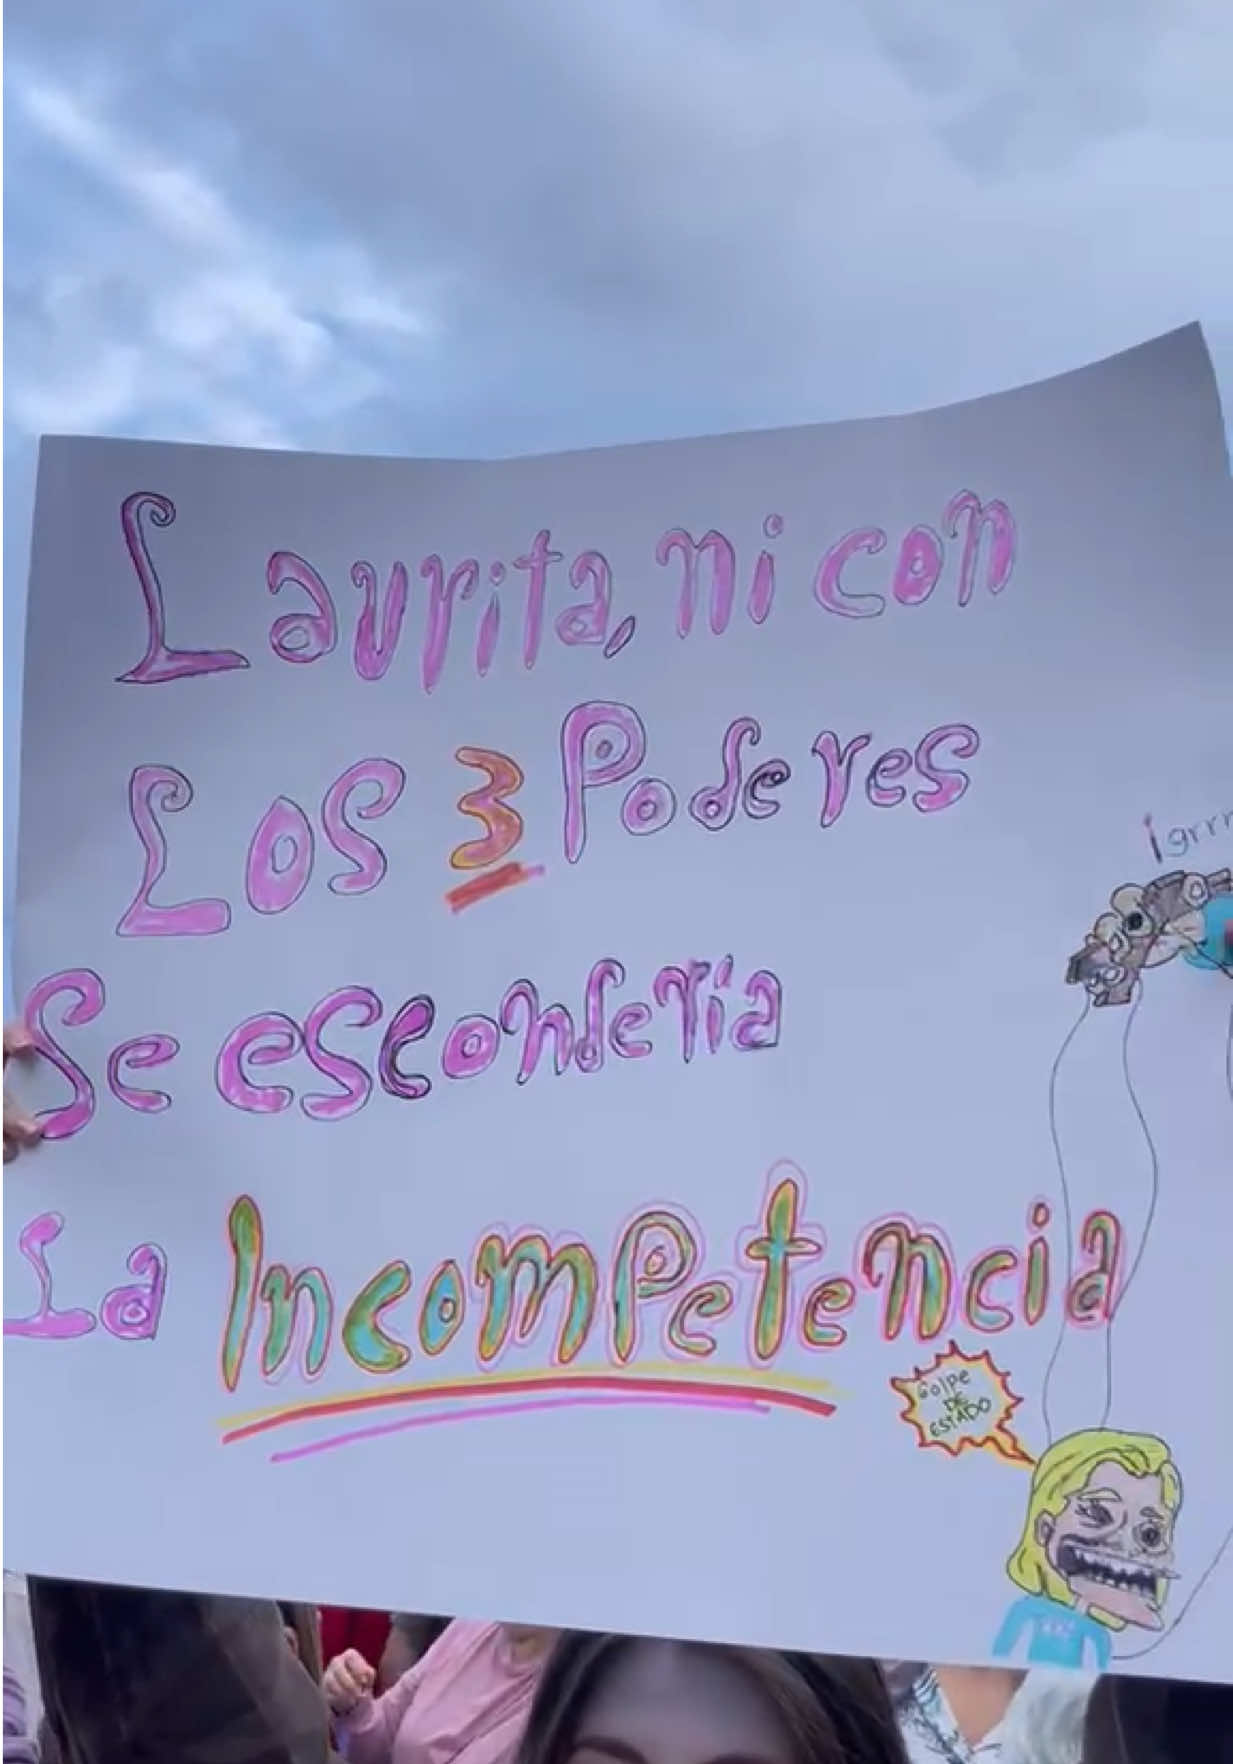 Laurita, ni con
Los 3 Poderes
Se escondería
La Incompetencia
Golpe
DE
ESTADO